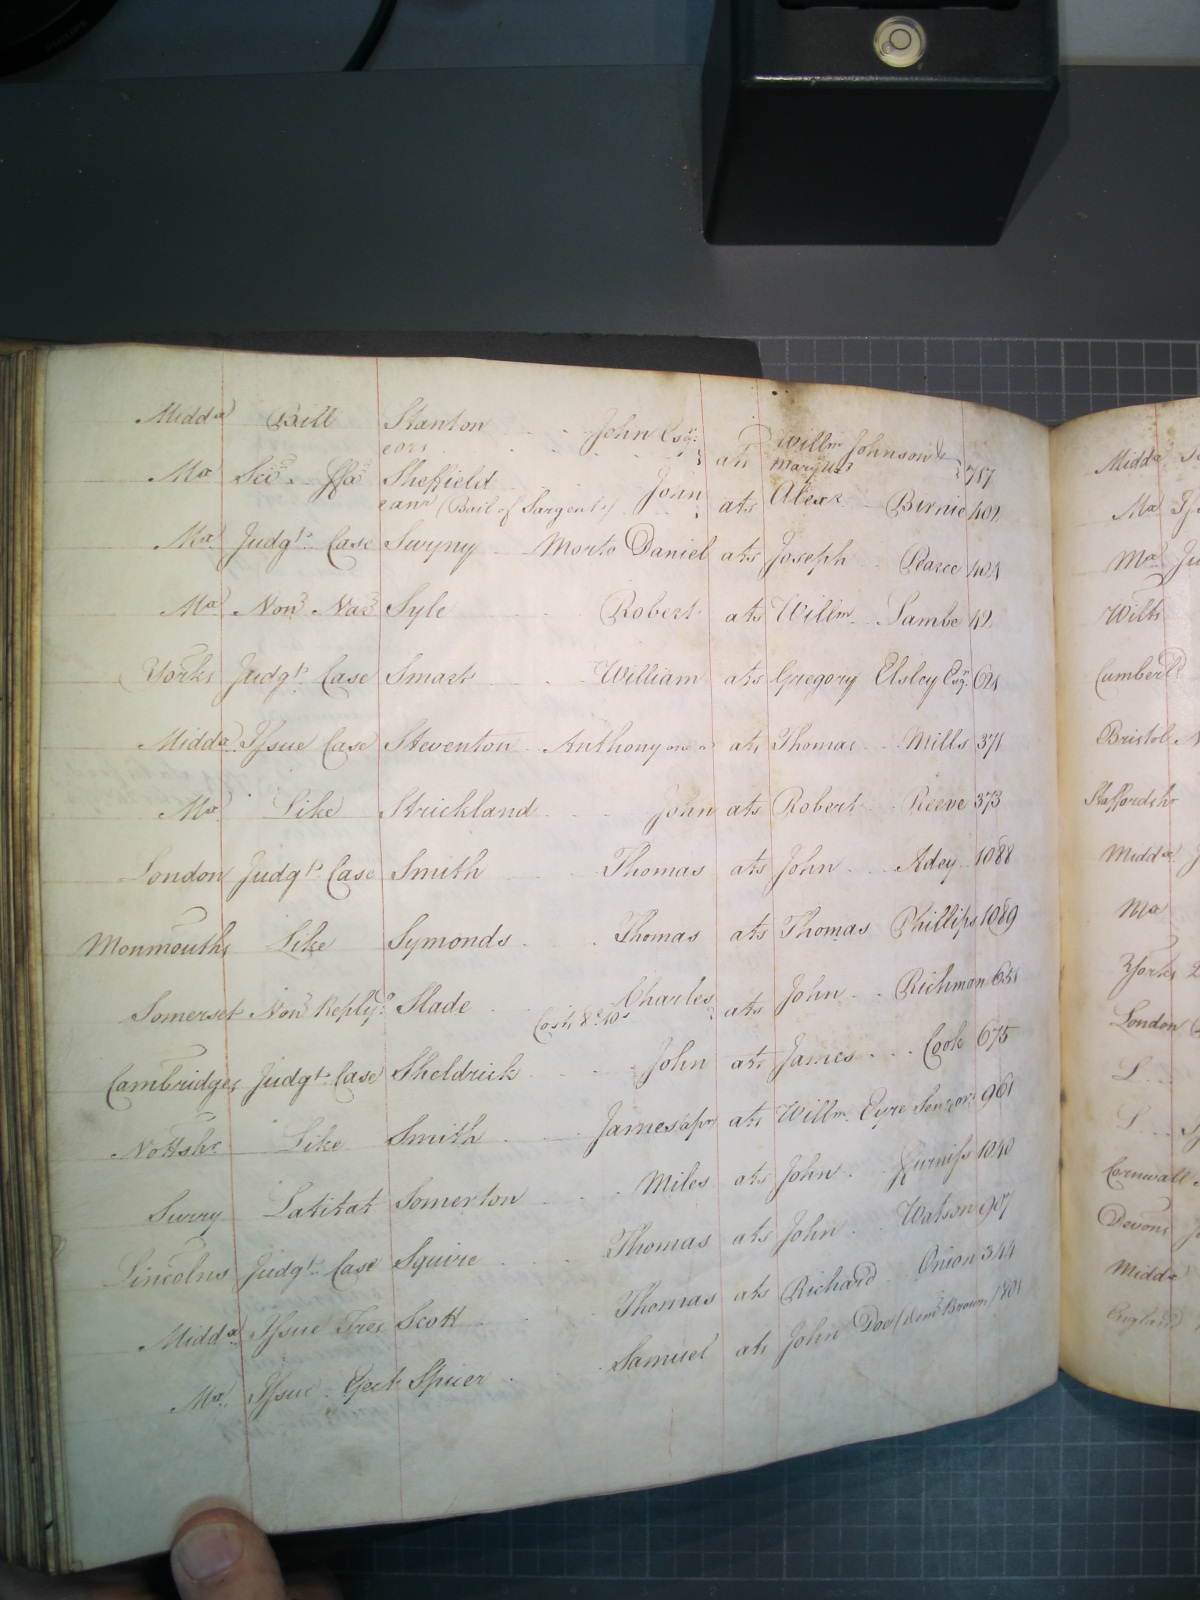 Midd.x Bill Stanton John Esq.r ats Willm Johnson & 717
eors Marquis
Ma Sci.a Ffa.s Sheffield John ats Alexr. Birnie 402
eant (Bail of Sargent)
Ma Judgt. Case Swyny Morto Daniel ats Joseph Pearce 424
Ma Non Nar Syle Robert ats Willm. Lambe 42
Yorks Judgt. Case Smart William ats Gregory Elsley Esqr. 621
Middx. Issue Case Steventon Anthony one &c ats Thomas Mills 371
Ma Like Strickland John ats Robert Reeve 373
London Judgt. Case Smith Thomas ats John Adey 1088
Monmouths Like Symonds Thomas ats Thomas Phillips 1089
Somerset Non Reply.o Slade Charles ats John Richman 651
Costs 8.£ 10s
Cambridges Judgt. Case Sheldrick John ats James Cook 675
Nottshr. Like Smith James ats Willm. Eyre Senr. 961
Surry Latitat Somerton Miles ats John Furniss 1040
Lincolns Judgt. Case Squire Thomas ats John Watson 907
Middx. Issue Tres Scott Thomas ats Richard Onion 344
Ma. Issue Eject Spicer Samuel ats John Doe (Dem. Brown) 1801
Middx
Ma
Ma
Wilts
Cumberl.d
Bristol
Staffordshr
Middx
Ma
Yorks
London
L
L
Cornwall
Devons
Middx
England